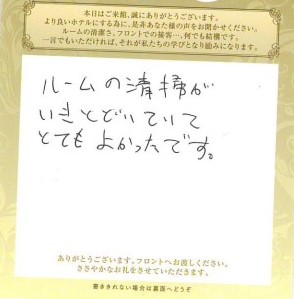 本日はご来館、誠にありがとうございます。
より良いホテルにする為に、是非あなた様の声をお聞かせください。
ルームの清潔さ、フロントでの接客…、何でも結構です。
一言でもいただければ、それが私たちの学びとなり励みになります。
ルームの清掃が
いきとどいていて
とてもよかったです。
ありがとうございます。フロントへお渡しください。
ささやかなお礼をさせていただきます。
書ききれない場合は裏面へどうぞ